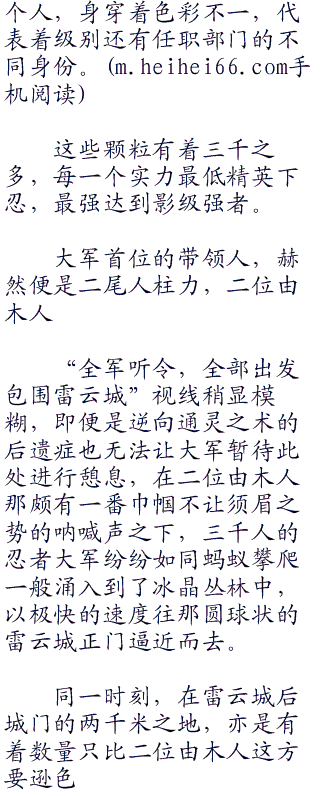 个人，身穿着色彩不一，代
表着级别还有任职部门的不
同身份。(m.heihei66.com手
机阅读)
这些颗粒有着三千之
多，每一个实力最低精英下
忍，最强达到影级强者。
大军首位的带领人，赫
然便是二尾人柱力，二位由
木人
“全军听令，全部出发
包围雷云城”视线稍显模
糊，即便是逆向通灵之术的
后遗症也无法让大军暂待此
处进行憩息，在二位由木人
那颇有一番巾帼不让须眉之
势的呐喊声之下，三千人的
忍者大军纷纷如同蚂蚁攀爬
一般涌入到了冰晶丛林中，
以极快的速度往那圆球状的
雷云城正门逼近而去。
同一时刻，在雷云城后
城门的两千米之地，亦是有
着数量只比二位由木人这方
要逊色